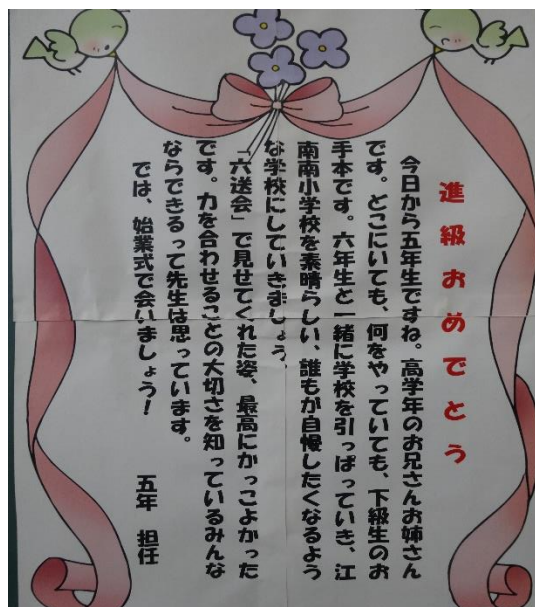 進級おめでとう
今日から五年生ですね。高学年のお兄さんお姉さん
です。どこにいても、何をやっていても、下級生のお
手本です。六年生と一緒に学校を引っぱっていき、江
南南小学校を素晴らしい、誰もが自慢したくなるよう
な学校にしていきましょう。
「六送会」で見せてくれた姿、最高にかっこよかった
です。力を合わせることの大切さを知っているみんな
ならできるって先生は思っています。
では、始業式で会いましょう！
五年　担任